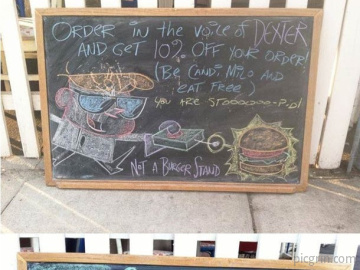 Order in the voice of DEXTER
AND GET 10% OFF YOUR ORDER!
(Be Candi, Milo AND
eat FREE)
YOU ARE STOOOOOO-P-D!
Not A Burger Stand
picgrin.com